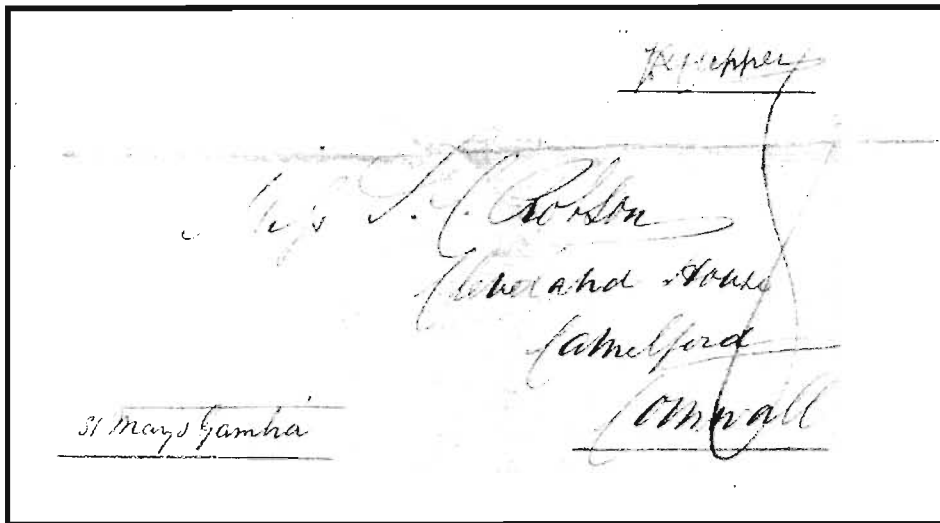 Miss S. C. Robson
Cleveland House
Camelford
Cornwall
St Marys Gambia